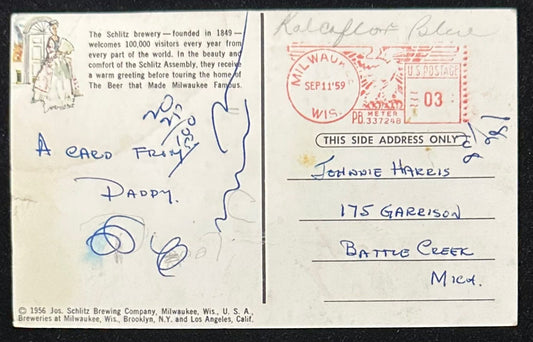 The Schlitz brewery — founded in 1849 —
welcomes 100,000 visitors every year from
every part of the world. In the beauty and
comfort of the Schlitz Assembly, they receive
a warm greeting before touring the home of
The Beer that Made Milwaukee Famous.
A CARD FROM
DADDY.
© 1956 Jos. Schlitz Brewing Company, Milwaukee, Wis., U. S. A.,
Breweries at Milwaukee, Wis., Brooklyn, N.Y. and Los Angeles, Calif.
MILWAUKEE
SEP 11 '59
WIS.
U.S. POSTAGE
03
PB METER
337248
THIS SIDE ADDRESS ONLY
JOHNNIE HARRIS
175 GARRISON
BATTLE CREEK
MICH.